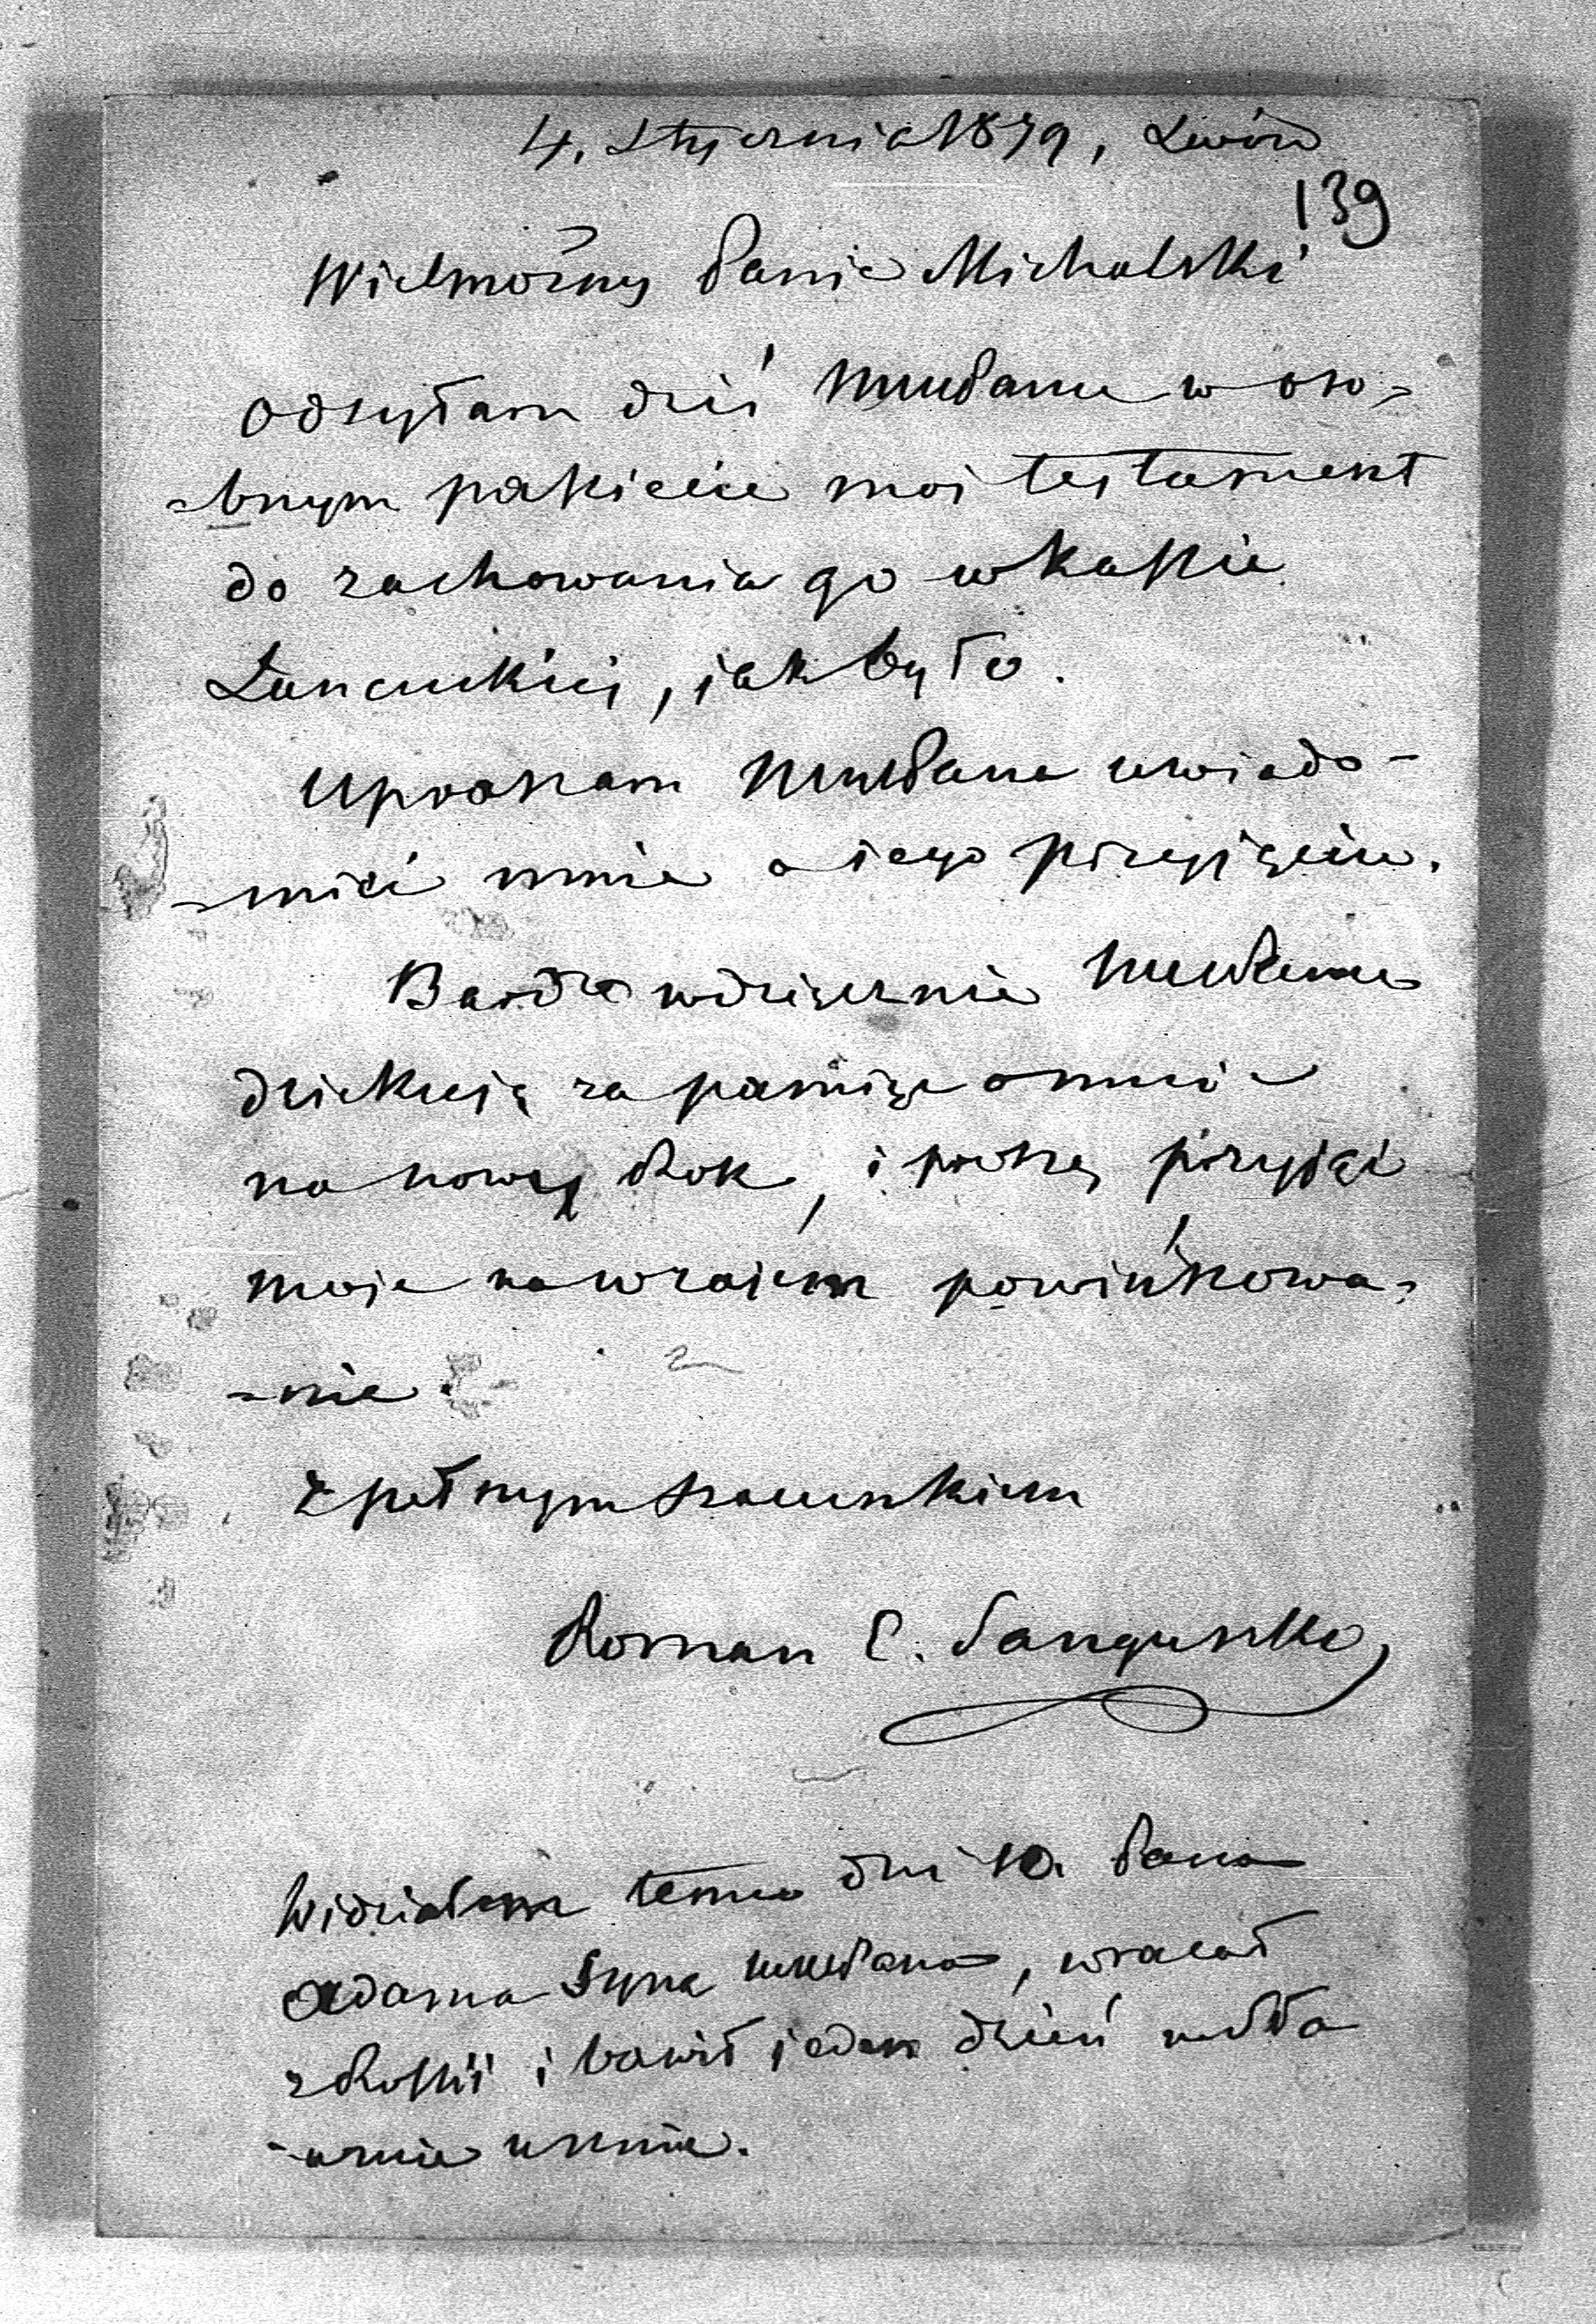 4. Stycznia 1879, Lwów
139
Wielmożny Panie Michalski!
Odsyłam dziś WmuPanu w oso=
=bnym pakiecie moi testament
do zachowania go w kassie
Łancuckiej, jak było.
Upraszam WmuPana uwiado-
=mić mnie o iego przyjęciu.
Bardzo wdzięcznie WmuPanu
dziekuję za pamięć o mnie
na nowy Rok, i proszę przyjąć
moje nawzaiem powinszowa=
=nie.
Z pełnym szacunkiem
Roman C. Sanguszko
Widziałem temu dni 10. Pana
Adama Syna WmuPana, wracał
z Rossii i bawił jeden dzień w Sła
-wucie u mnie.